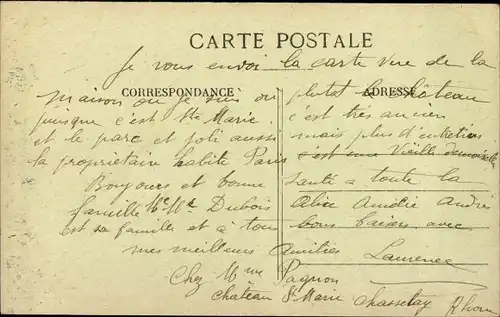 CARTE POSTALE
Je vous envoi la carte vue de la
CORRESPONDANCE
ADRESSE
maison ou je suis ou plutot le château
puisque c'est Ste Marie. c'est très ancien
et le parc et joli aussi mais plus d'entretien
la propriétaire habite Paris c'est une Vieille demoiselle
Bonjours et bonne santé a toute la
famille Mr Me Dubois Alice Amélie André
est sa famille et a tous bons baisers avec
mes meilleurs Amitiés Laurence
Chez Mme Pagnon
Château Ste Marie Chasselay Rhone